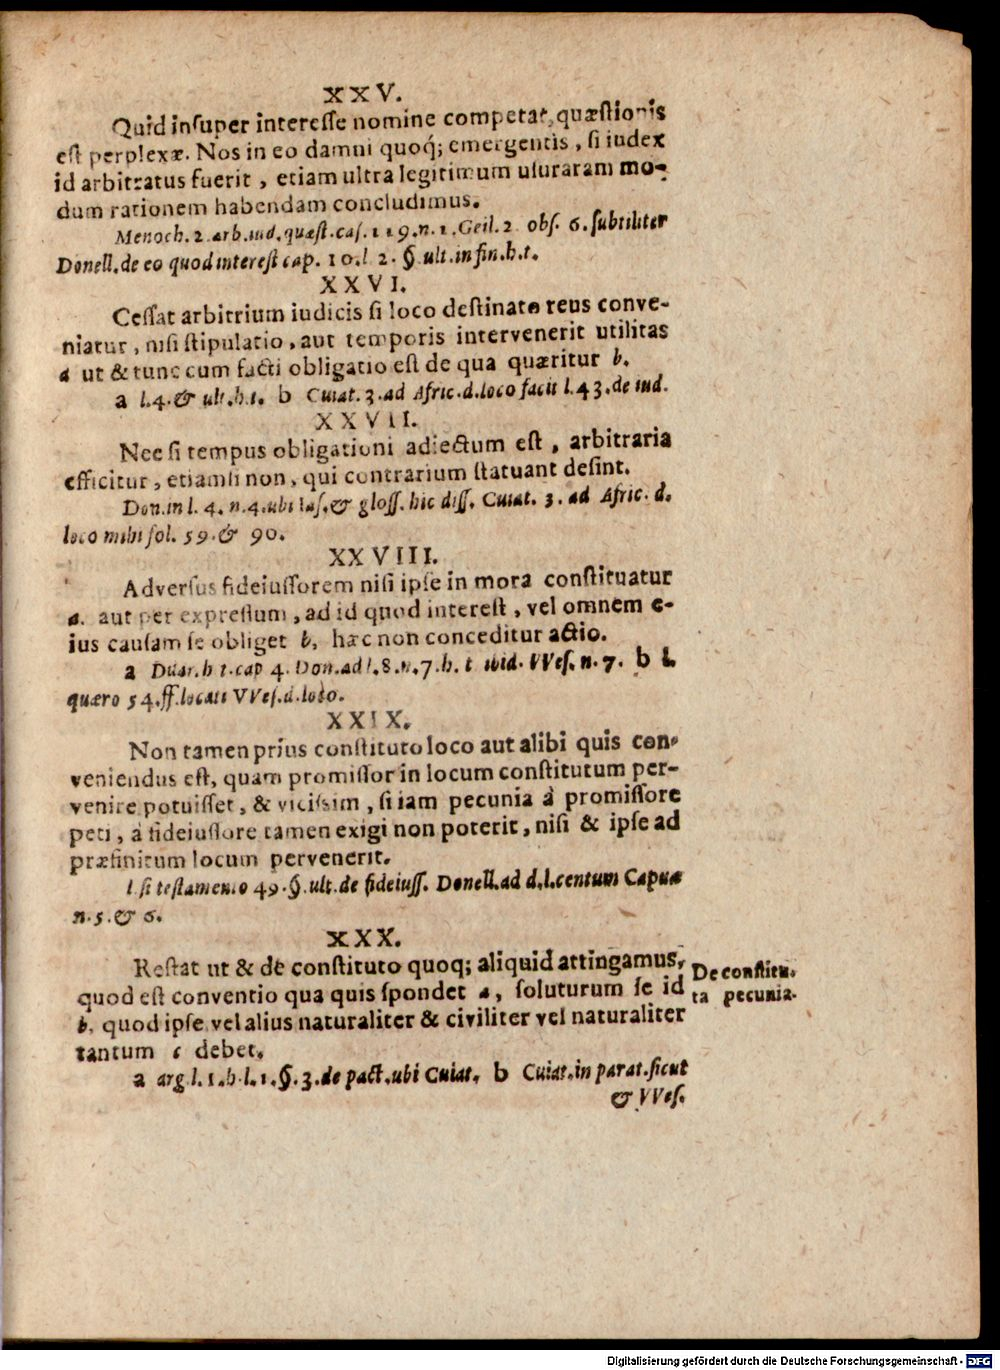 XXV.
Quid insuper interesse nomine competat, quæstionis
est perplexæ. Nos in eo damni quoq́; emergentis, si iudex
id arbitratus fuerit, etiam ultra legitimum usuraram mo-
dum rationem habendam concludimus.
Menoch. 2. arb. iud. quæst. cas. 119. n. 1. Geil. 2. obs. 6. subtiliter
Donell. de eo quod interest cap. 10. l 2. §. ult. in fin. h. t.
XXVI.
Cessat arbitrium iudicis si loco destinato reus conve-
niatur, nisi stipulatio, aut temporis intervenerit utilitas
a ut & tunc cum facti obligatio est de qua quæritur b.
a l. 4. & ult. h. t. b Cuiat. 3. ad Afric. d. loco facit l. 43. de iud.
XXVII.
Nec si tempus obligationi adiectum est, arbitraria
efficitur, etiamsi non, qui contrarium statuant desint.
Don. in l. 4. n. 4. ubi Ias. & gloss. hic diss. Cuiat. 3. ad Afric. d.
loco mihi fol. 59. & 90.
XXVIII.
Adversus fideiussorem nisi ipse in mora constituatur
a. aut per expressum, ad id quod interest, vel omnem e-
ius causam se obliget b, hæc non conceditur actio.
a Duar. h t. cap 4. Don. ad l. 8. n. 7. h. t ibid. VVes. n. 7. b l.
quæro 54. ff. locati VVes. d. loco.
XXIX.
Non tamen prius constituto loco aut alibi quis con-
veniendus est, quam promissor in locum constitutum per-
venire potuisset, & vicissim, si iam pecunia à promissore
peti, à fideiussore tamen exigi non poterit, nisi & ipse ad
præfinitum locum pervenerit.
l. si testamento 49. §. ult. de fideiuss. Donell. ad d. l. centum Capuæ
n. 5. & 6.
XXX.
Restat ut & de constituto quoq; aliquid attingamus,
quod est conventio qua quis spondet a, soluturum se id
b, quod ipse vel alius naturaliter & civiliter vel naturaliter
tantum c debet.
De constitu-
ta pecunia.
a arg. l. 1. h. l. 1. §. 3. de pact. ubi Cuiat. b Cuiat. in parat. sicut
& VVes.
Digitalisierung gefördert durch die Deutsche Forschungsgemeinschaft - DFG